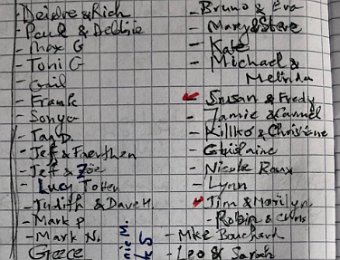 Deidre & Rich
- Paul & Debbie
- Max G
- Toni G
- Gail
- Frank
- Sonya
- Jeff &
- Jeff & Zoë
- Lucy
- Judith & Dave H.
- Mark P
- Mark N.
Greece
- Bruno & Eva
- Mary & Steve
- Kate
- Michael &
Melinda
- Susan & Fredy
- Jamie &
- Killko & Christine
- Ghislaine
- Nicole Roux
- Lynn
- Tim & Marilyn
- Robin & Chris
- Mke Bouchard
- Leo & Sarah